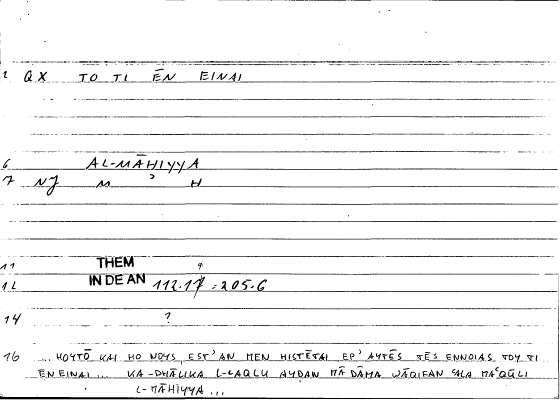 2 QX TO TI ĒN EINAI
6 AL-MĀHIYYA
7 NJ M ʾ H
11 THEM ?
12 IN DE AN 112.17 = 205.6
14 ?
16 ... HOYTŌ KAI HO NOYS, EST'AN MEN HISTĒTAI EP'AYTĒS TĒS ENNOIAS TOY TI
ĒN EINAI ... KA-DHĀLIKA L-ʿAQLU AYḌAN MĀ DĀMA WĀQIFAN ʿALĀ MAʿQŪLI
L-MĀHIYYA ...